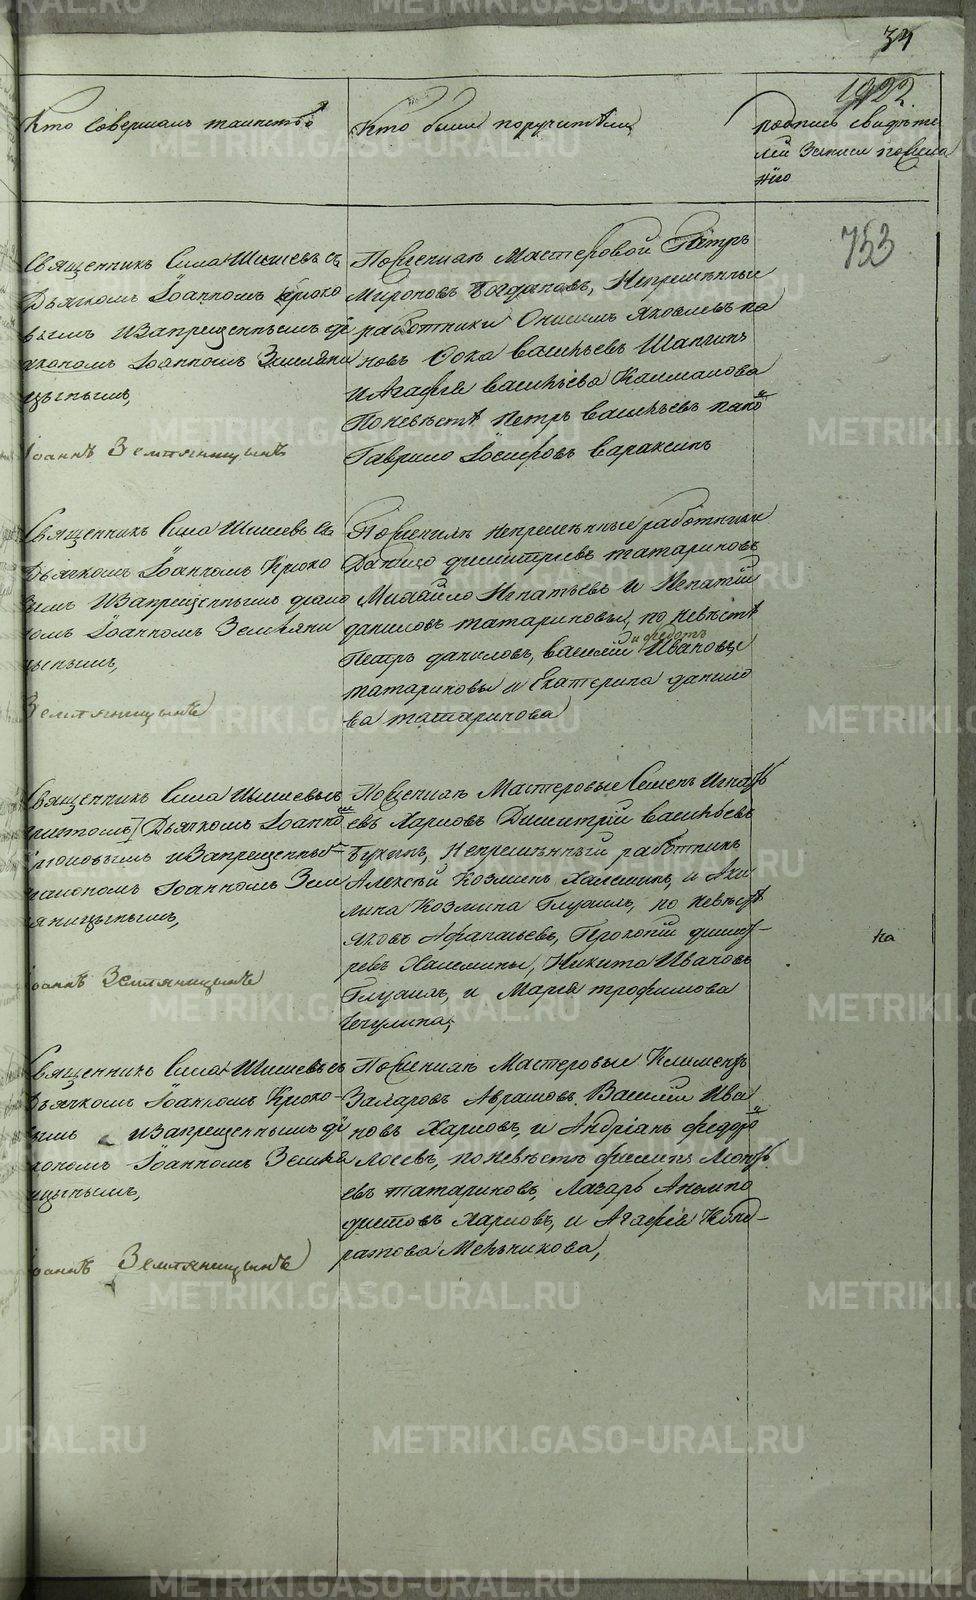 34
1922.
Кто совершалъ таинство
Кто были поручители
подпись свидѣте
лей записи по жела
нію
753
Священникъ Сила Шишевъ съ
Дьячкомъ Іоанномъ Крюко
вымъ и запрещеннымъ ді
акономъ Іоанномъ Земляни
цынымъ,
Іоаннъ Земляницынъ
По женихѣ Мастеровой Петръ
Мироновъ Богдановъ, Непремѣнныи
работники Онисимъ Яковлевъ па
новъ Фока Васильевъ Шапгинъ
и Агафья Васильева Калмакова
По невѣстѣ Петръ Васильевъ пано
Гаврило Іосифовъ Вараксинъ
Священникъ Сила Шишевъ съ
Дьячкомъ Іоанномъ Крюко
вымъ и запрещеннымъ діако
номъ Іоанномъ Земляни
цынымъ,
Земляницынъ
По женихѣ непремѣнные работники
Данило Димитріевъ татариновъ
Михайло Игнатьевъ и Игнатій
даниловъ татариновы, по невѣстѣ
Петръ даниловъ, василій и федотъ Ивановы
татариновы и Екатерина данило
ва татаринова
Священникъ Сила Шишевъ съ
причтомъ Дьячкомъ Іоанно
Крюковымъ и запрещенны
діакономъ Іоанномъ Зем
ляницынымъ,
Іоаннъ Земляницынъ
По женихѣ Мастеровые Семенъ Игнать
евъ Харловъ Димитрій Васильевъ
Букинъ, Непремѣнный работникъ
Алексѣй Козминъ Халеминъ, и Аки
лина Козмина Глухихъ, по невѣстѣ
Яковъ Афанасьевъ, Прокопій димит
ревъ Халемины, Никита Ивановъ
Глухихъ, и Марья трофимова
Чечулина,
на
Священникъ Сила Шишевъ съ
Дьячкомъ Іоанномъ Крюко-
вымъ и запрещеннымъ ді
акономъ Іоанномъ Земля
ницынымъ,
Іоаннъ Земляницынъ
По женихѣ Мастеровые Климентъ
Захаровъ Аврамовъ, Василій Ива
новъ Харловъ, и Андріанъ федоро
Лосевъ, по невѣстѣ филипъ Леонть
евъ татариновъ, Лазарь Анемпо
дистовъ Харловъ, и Агафія Конд-
ратова Мельникова,
METRIKI.GASO-URAL.RU